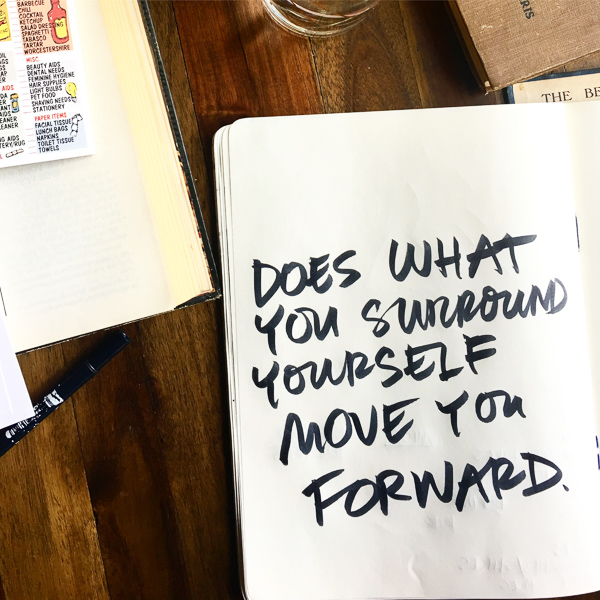 BARBECUE
CHILI
COCKTAIL
KETCHUP
SALAD DRESSING
SPAGHETTI
TABASCO
TARTAR
WORCESTERSHIRE
MISC.
BEAUTY AIDS
DENTAL NEEDS
FEMININE HYGIENE
HAIR SUPPLIES
LIGHT BULBS
PET FOOD
SHAVING NEEDS
STATIONERY
PAPER ITEMS
FACIAL TISSUE
LUNCH BAGS
NAPKINS
TOILET TISSUE
TOWELS
THE BE
DOES WHAT
YOU SURROUND
YOURSELF
MOVE YOU
FORWARD.